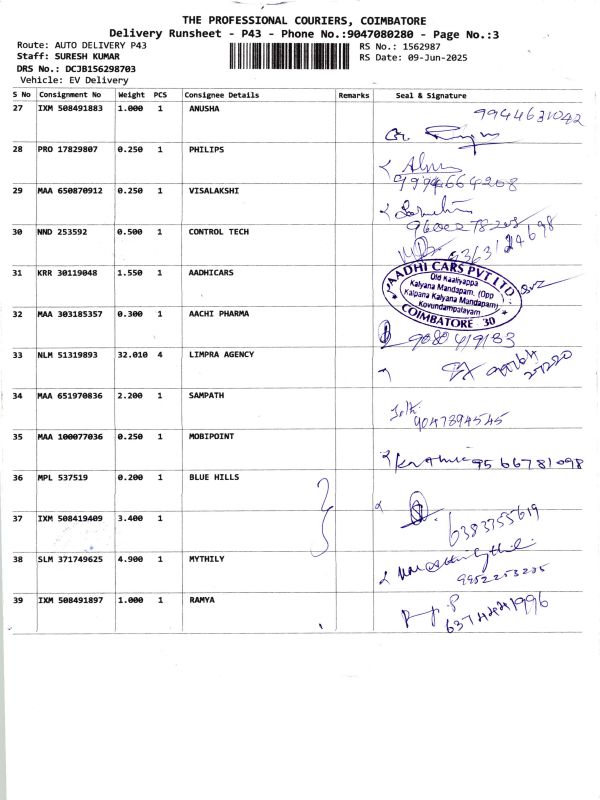 THE PROFESSIONAL COURIERS, COIMBATORE
Delivery Runsheet - P43 - Phone No.:9047080280 - Page No.:3
Route: AUTO DELIVERY P43
Staff: SURESH KUMAR
DRS No.: DCJB156298703
Vehicle: EV Delivery
RS No.: 1562987
RS Date: 09-Jun-2025
S No Consignment No Weight PCS Consignee Details Remarks Seal & Signature
27 IXM 508491883 1.000 1 ANUSHA 9944631042
28 PRO 17829807 0.250 1 PHILIPS
9994664208
29 MAA 650870912 0.250 1 VISALAKSHI
30 NND 253592 0.500 1 CONTROL TECH
31 KRR 30119048 1.550 1 AADHICARS
AADHI CARS PVT LTD
Old Kaaliyappa
Kalyana Mandapam, (Opp
Kalpana Kalyana Mandapam)
Kovundampalayam
COIMBATORE - 30
32 MAA 303185357 0.300 1 AACHI PHARMA
9080419133
33 NLM 51319893 32.010 4 LIMPRA AGENCY
34 MAA 651970836 2.200 1 SAMPATH
9047894545
35 MAA 100077036 0.250 1 MOBIPOINT
9566781098
36 MPL 537519 0.200 1 BLUE HILLS
37 IXM 508419409 3.400 1
6383755619
38 SLM 371749625 4.900 1 MYTHILY
9952253235
39 IXM 508491897 1.000 1 RAMYA